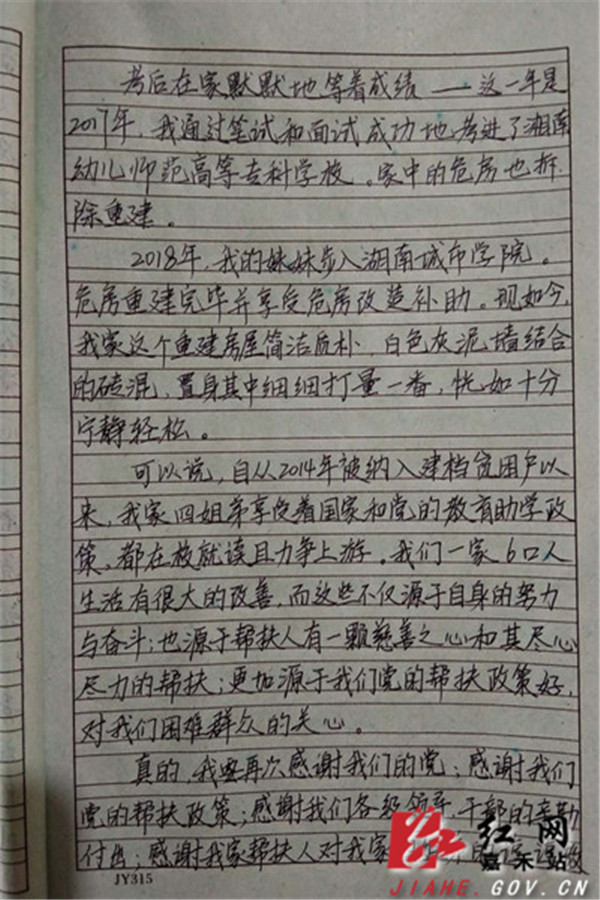 考后在家默默地等着成绩——这一年是
2017年，我通过笔试和面试成功地考进了湘南
幼儿师范高等专科学校。家中的危房也拆
除重建。
2018年，我的妹妹步入湖南城市学院。
危房重建完毕并享受危房改造补助。现如今，
我家这个重建房屋简洁质朴，白色灰泥墙结合
的砖混，置身其中细细打量一番，恍如十分
宁静轻松。
可以说，自从2014年被纳入建档贫困户以
来，我家四姐弟享受着国家和党的教育助学政
策，都在校就读且力争上游。我们一家6口人
生活有很大的改善，而这些不仅源于自身的努力
与奋斗；也源于帮扶人有一颗慈善之心和其尽心
尽力的帮扶；更加源于我们党的帮扶政策好，
对我们困难群众的关心。
真的，我要再次感谢我们的党；感谢我们
党的帮扶政策；感谢我们各级领导、干部的辛勤
付出；感谢我家帮扶人对我家
JY315
红网
嘉禾站
JIAHE.GOV.CN